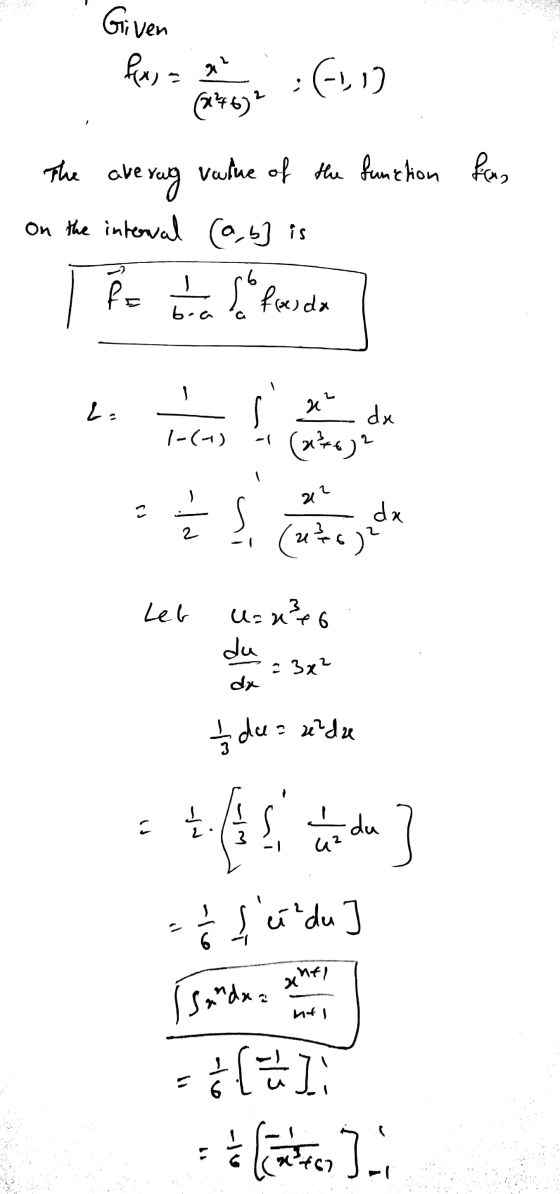 Given
f(x) = x² / (x³+6)² ; (-1, 1)
The average value of the function f(x)
on the interval [a,b] is
f̄ = 1/(b-a) ∫_a^b f(x) dx
L = 1/(1-(-1)) ∫_{-1}^1 x²/(x³+6)² dx
= 1/2 ∫_{-1}^1 x²/(x³+6)² dx
Let u = x³+6
du/dx = 3x²
1/3 du = x² dx
= 1/2 · [1/3 ∫_{-1}^1 1/u² du]
= 1/6 ∫_{-1}^1 u⁻² du]
[∫xⁿdx = xⁿ⁺¹/(n+1)
= 1/6 [-1/u]_{-1}^1
= 1/6 [-1/(x³+6)]_{-1}^1